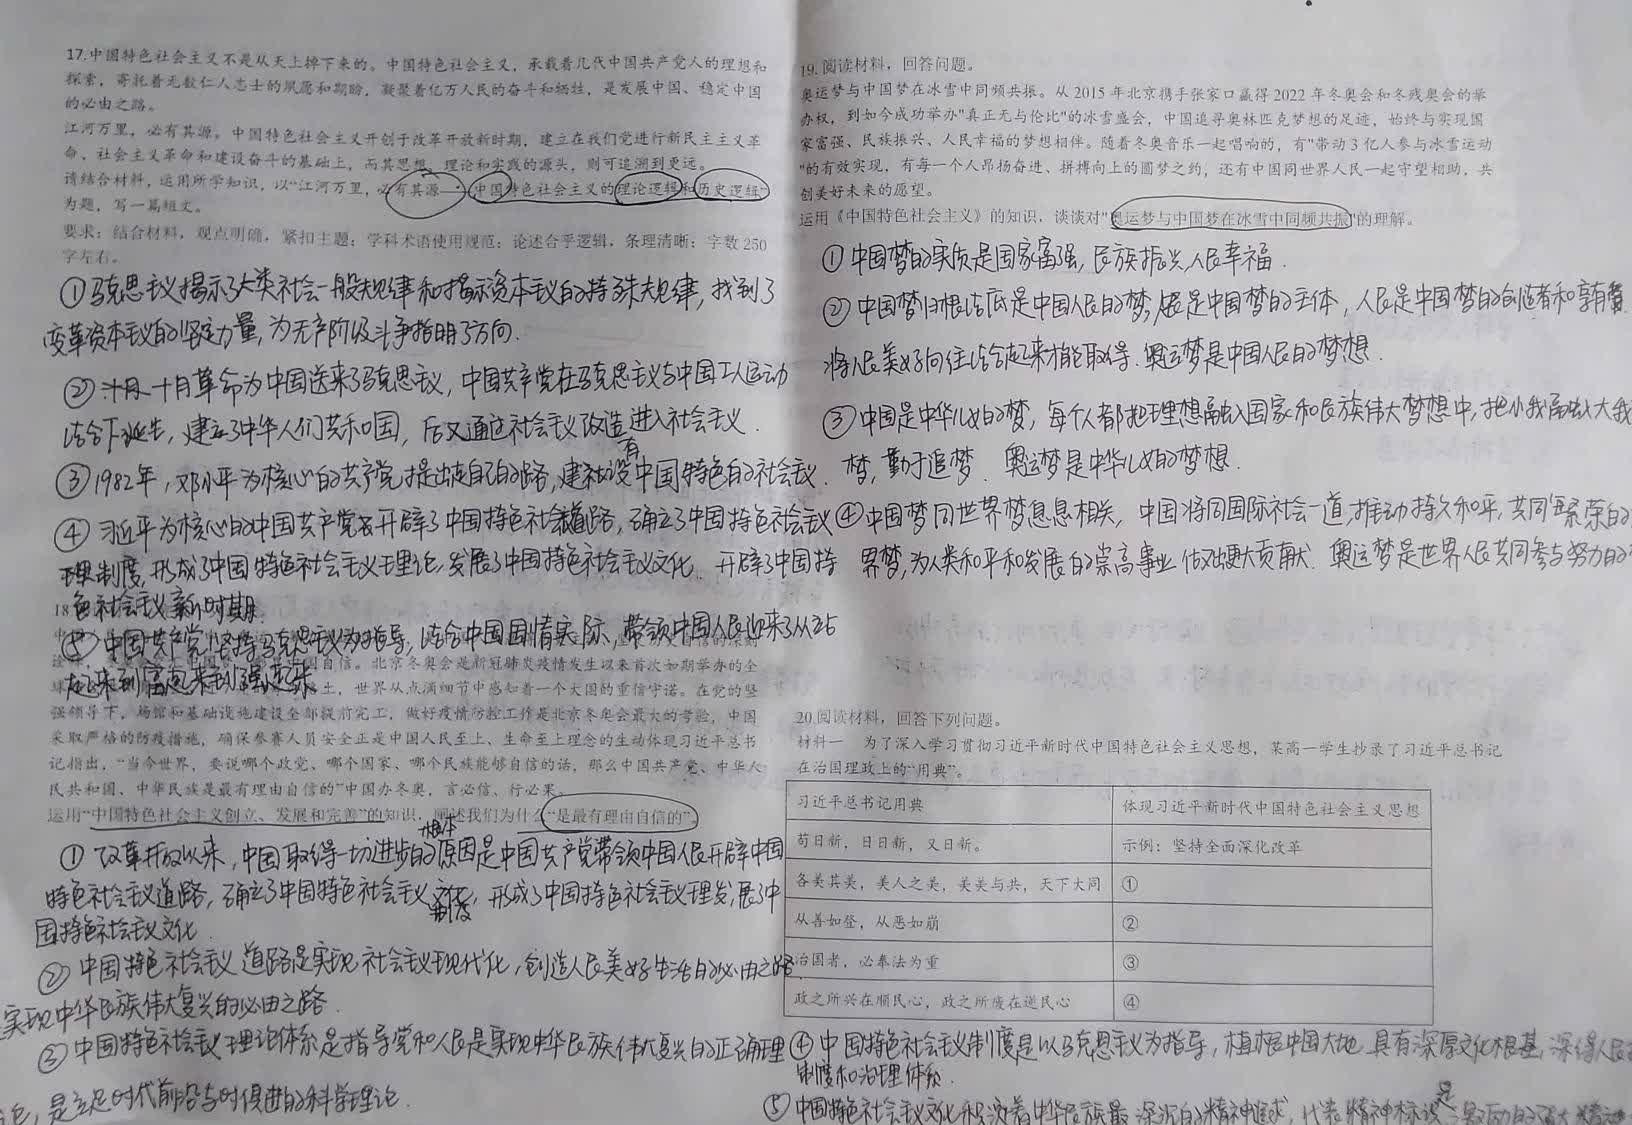 17.中国特色社会主义不是从天上掉下来的。中国特色社会主义，承载着几代中国共产党人的理想和
探索，寄托着无数仁人志士的夙愿和期盼，凝聚着亿万人民的奋斗和牺牲，是发展中国、稳定中国
的必由之路。
江河万里，必有其源。中国特色社会主义开创于改革开放新时期，建立在我们党进行新民主主义革
命、社会主义革命和建设奋斗的基础上，而其思想、理论和实践的源头，则可追溯到更远。
请结合材料，运用所学知识，以“江河万里，必有其源——中国特色社会主义的理论逻辑和历史逻辑”
为题，写一篇短文。
要求：结合材料，观点明确，紧扣主题；学科术语使用规范；论述合乎逻辑，条理清晰；字数250
字左右。
①马克思主义揭示了人类社会一般规律和揭示资本主义的特殊规律，找到了
变革资本主义的坚定力量，为无产阶级斗争指明了方向.
②十月革命为中国送来了马克思主义，中国共产党在马克思主义与中国工人运动
结合下诞生，建立了中华人们共和国，后又通过社会主义改造进入社会主义.
③1982年，邓小平为核心的共产党提出走自己的路，建设有中国特色的社会主义.
④习近平为核心的中国共产党开辟了中国特色社会主义道路，确立了中国特色社会主义
制度，形成了中国特色社会主义理论，发展了中国特色社会主义文化. 开辟了中国特
色社会主义新时期.
18
⑤中国共产党坚持马克思主义为指导，结合中国国情实际，带领中国人民迎来了从站
起来到富起来到强起来
自信。北京冬奥会是新冠肺炎疫情发生以来首次如期举办的全
土，世界从点滴细节中感知着一个大国的重信守诺。在党的坚
强领导下，场馆和基础设施建设全部提前完工，做好疫情防控工作是北京冬奥会最大的考验，中国
采取严格的防疫措施，确保参赛人员安全正是中国人民至上、生命至上理念的生动体现习近平总书
记指出，“当今世界，要说哪个政党、哪个国家、哪个民族能够自信的话，那么中国共产党、中华人
民共和国、中华民族是最有理由自信的”中国办冬奥，言必信、行必果。
运用“中国特色社会主义创立、发展和完善”的知识，阐述我们为什么“是最有理由自信的”。
①改革开放以来，中国取得一切进步的根本原因是中国共产党带领中国人民开辟中国
特色社会主义道路，确立了中国特色社会主义制度，形成了中国特色社会主义理发，展了中
国特色社会主义文化
②中国特色社会主义道路是实现社会主义现代化，创造人民美好生活的必由之路
实现中华民族伟大复兴的必由之路.
③中国特色社会主义理论体系是指导党和人民是实现中华民族伟大复兴的正确理
论，是立足时代前沿与时俱进的科学理论.
19.阅读材料，回答问题。
奥运梦与中国梦在冰雪中同频共振。从2015年北京携手张家口赢得2022年冬奥会和冬残奥会的举
办权，到如今成功举办"真正无与伦比"的冰雪盛会，中国追寻奥林匹克梦想的足迹，始终与实现国
家富强、民族振兴、人民幸福的梦想相伴。随着冬奥音乐一起唱响的，有"带动3亿人参与冰雪运动
"的有效实现，有每一个人昂扬奋进、拼搏向上的圆梦之约，还有中国同世界人民一起守望相助，共
创美好未来的愿望。
运用《中国特色社会主义》的知识，谈谈对"奥运梦与中国梦在冰雪中同频共振"的理解。
①中国梦的实质是国家富强，民族振兴，人民幸福.
②中国梦归根结底是中国人民的梦，人民是中国梦的主体，人民是中国梦的创造者和享有者.
将人民美好向往结合起来才能取得. 奥运梦是中国人民的梦想.
③中国是中华儿女的梦，每个人都把理想融入国家和民族伟大梦想中，把小我融入大我
梦，勤于追梦. 奥运梦是中华儿女的梦想.
④中国梦同世界梦息息相关，中国将同国际社会一道，推动持久和平，共同繁荣的
界梦，为人类和平和发展的崇高事业做出更大贡献. 奥运梦是世界人民共同参与努力的
20.阅读材料，回答下列问题。
材料一 为了深入学习贯彻习近平新时代中国特色社会主义思想，某高一学生抄录了习近平总书记
在治国理政上的“用典”。
习近平总书记用典 体现习近平新时代中国特色社会主义思想
苟日新，日日新，又日新。 示例：坚持全面深化改革
各美其美，美人之美，美美与共，天下大同 ①
从善如登，从恶如崩 ②
治国者，必奉法为重 ③
政之所兴在顺民心，政之所废在逆民心 ④
④中国特色社会主义制度是以马克思主义为指导，植根中国大地 具有深厚文化根基，深得人民
制度和治理体系.
⑤中国特色社会主义文化积淀着中华民族最深沉的精神追求，代表精神标识